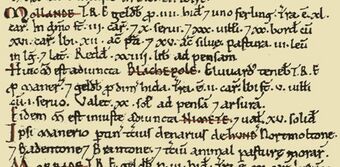 MOLLANDE. T.R.E. geldb p̃ .IIII. hid̃ 7 uno ferling. Tr̃a .ẽ. XL.
car̃. In dñio st̃ .III. car̃. 7 X. serui. 7 XXX. uilłi. 7 XX. bord̃ cũ
XVI. car̃. Ibi .XII. ac̃ p̃ti. 7 XV. ac̃ siluæ. Pastura .III. leuũ
in lg̃ 7 lat̃. Redd̃ XXIIII. lib̃ ad pensam.
Huic m̃ est adiuncta BLACHEPOLE. Eluuard teneb̃ T.R.E.
p̃ maner̃. 7 geldb̃ p̃ dim̃ hida. Tr̃a .ẽ. II. car̃. Ibi st̃ .V. uilłi
cũ .I. seruo. Valet .XX. sol̃ ad pensã 7 arsurã.
Eidem m̃ est iniuste adiuncta NIMETE. 7 ual̃ XV. solid̃.
Ipsi manerio ptiñ tcius denarius de hund̃ Nortmoltone
7 Badentone 7 Brantone 7 tciũ animal pasturæ morar̃.